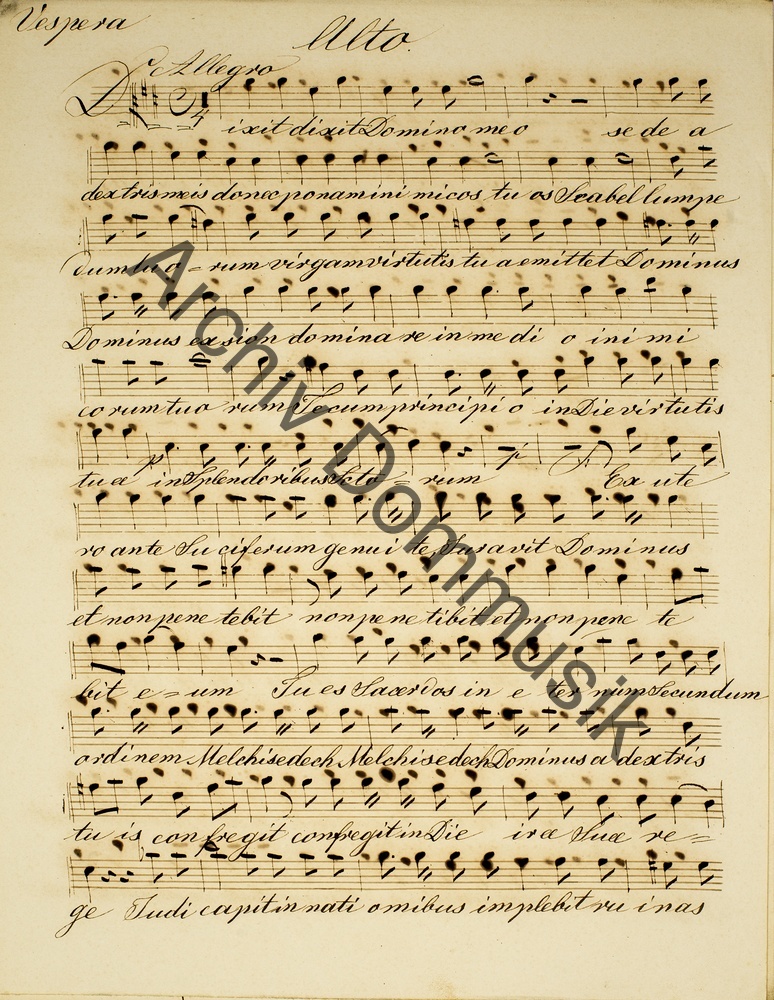 Vespera
Alto.
Allegro
4
Dixit dixit Domino meo sede a
dextris meis donec ponam ini micos tu os Scabellumpe
dum tuo = rum virgam virtutis tu ae mittet Dominus
Dominus ex sion domina re in me di o ini mi
corum tuo rum Tecum principi o in Die virtutis
p p
tuæ in Splendoribus Scto = rum Ex ute
ro ante Lu ciferum genui te, Juravit Dominus
et non pene tebit non pene tibit et non pene te
bit e = um Tu es Sacerdos in e ter num Secundum
ordinem Melchisedech Melchisedech Dominus a dextris
tu is confregit confregit in Die iræ Suæ re =
ge Judi capit in nati omibus implebit ru inas
Archiv Dommusik